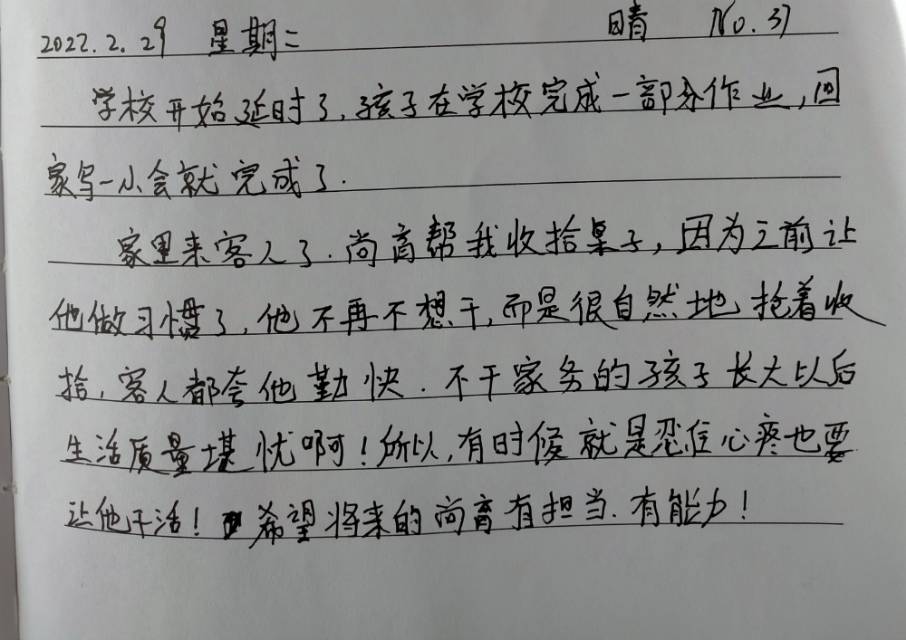 2022.2.29 星期二 晴 No.37
学校开始延时了.孩子在学校完成一部分作业,回
家写一小会就完成了.
家里来客人了.尚育帮我收拾桌子,因为之前让
他做习惯了,他不再不想干,而是很自然地抢着收
拾,客人都夸他勤快.不干家务的孩子长大以后
生活质量堪忧啊!所以,有时候就是忍住心疼也要
让他干活!希望将来的尚育有担当.有能力!